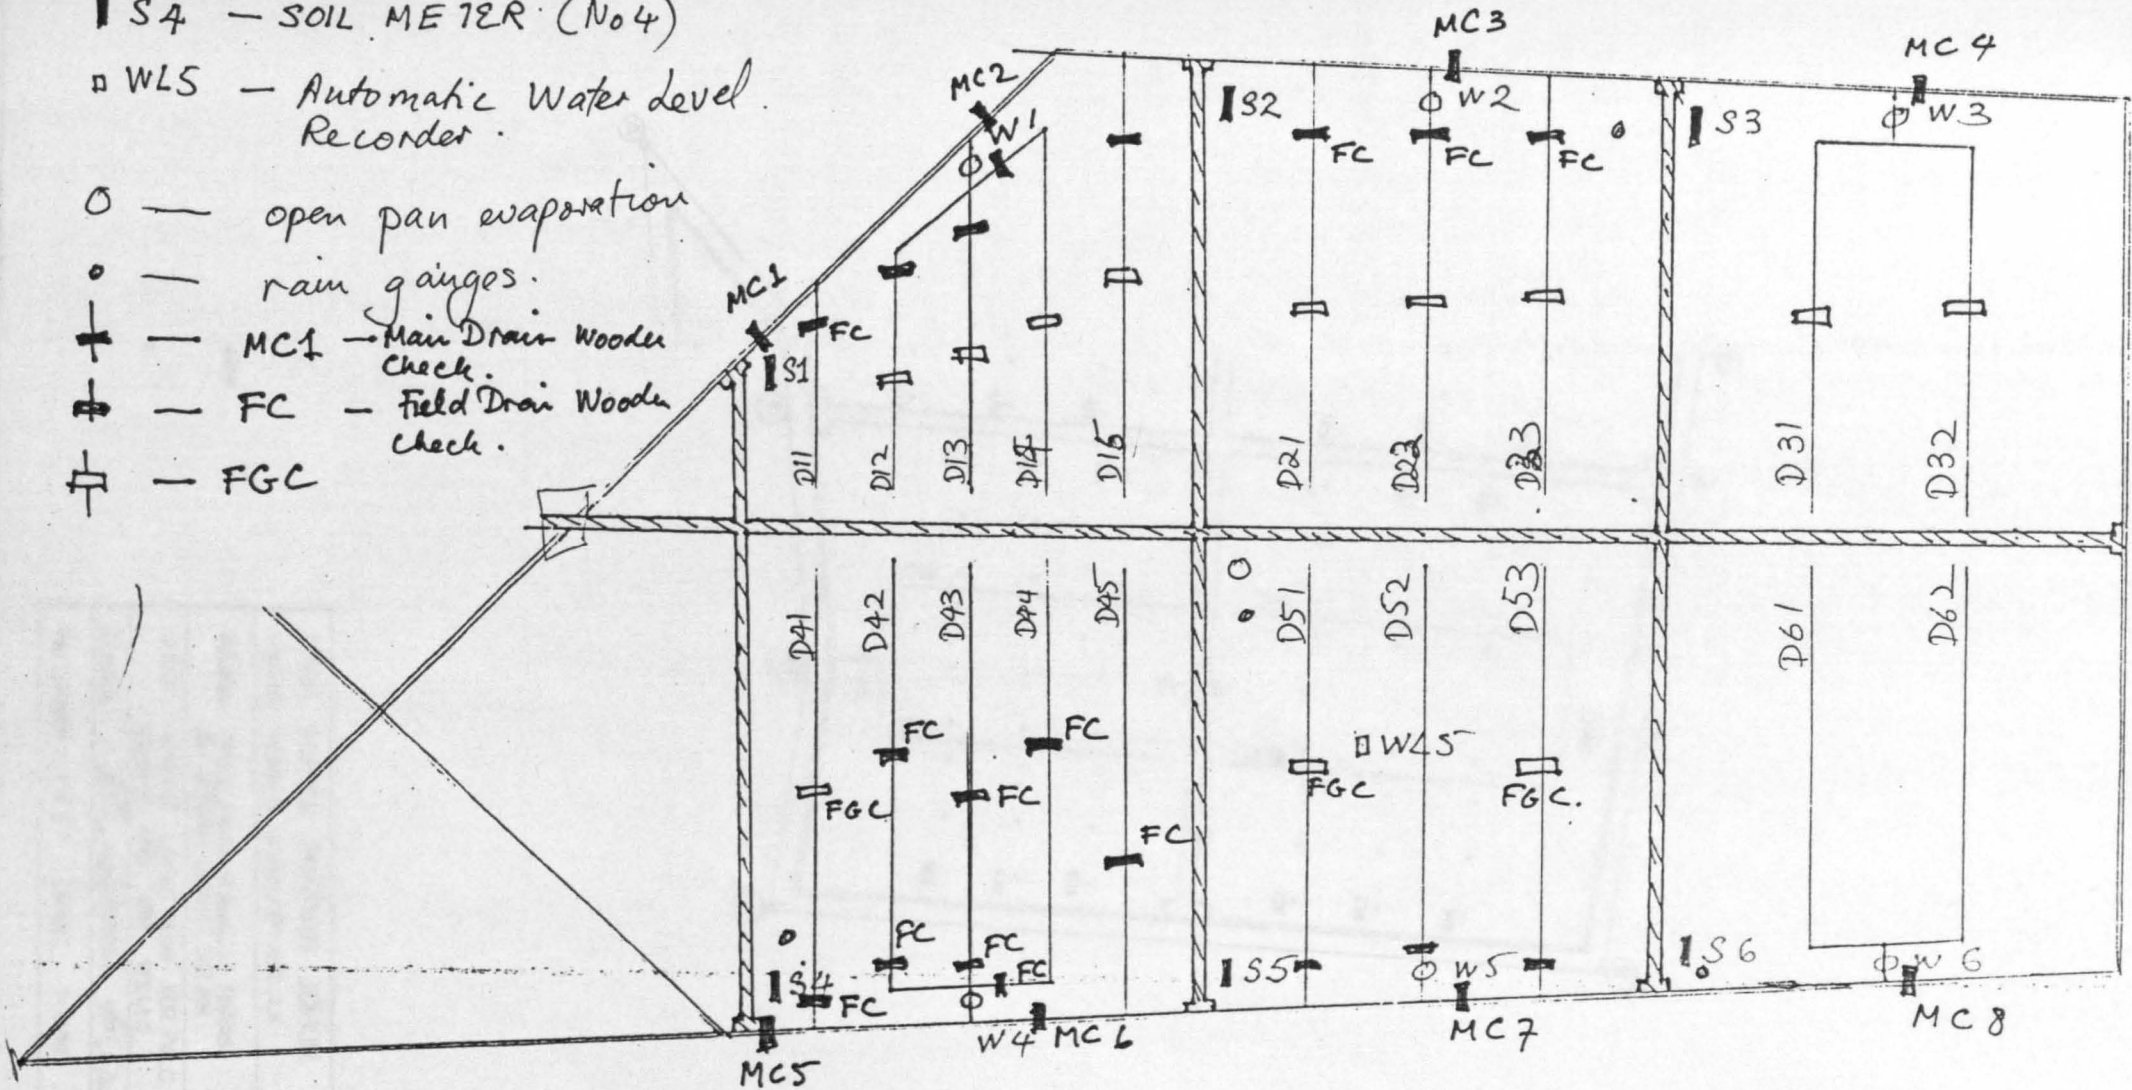 S4 — SOIL METER (No4)
WL5 — Automatic Water Level
Recorder.
O — open pan evaporation
o — rain gauges.
— MC1 — Main Drain Wooden
Check.
— FC — Field Drain Wooden
Check.
— FGC
MC1
MC2
MC3
MC4
S1
W1
S2
W2
S3
W3
FC
FC
FC
FC
D11
D12
D13
D14
D15
D21
D22
D23
D31
D32
D41
D42
D43
D44
D45
D51
D52
D53
D61
D62
FC
FC
FGC
FC
FC
WL5
FGC
FGC.
FC
FC
FC
S4
FC
S5
W5
S6
W6
W4
MC5
MC6
MC7
MC8